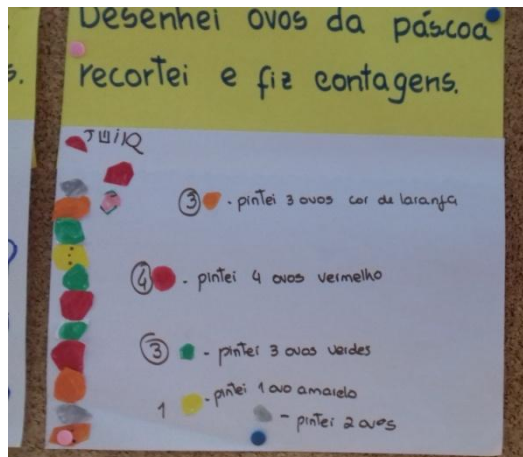 Desenhei ovos da páscoa
recortei e fiz contagens.
s.
3 - pintei 3 ovos cor de laranja
4 - pintei 4 ovos vermelho
3 - pintei 3 ovos verdes
1 - pintei 1 ovo amarelo
- pintei 2 ovos